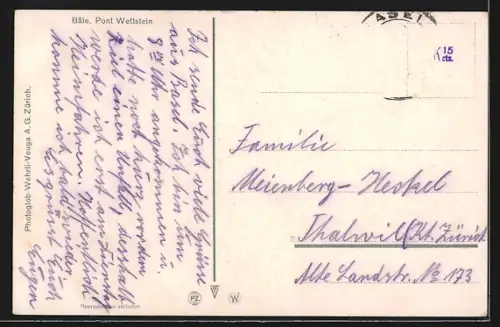 Bâle. Pont Wettstein
Photoglob-Wehrli-Vouga A. G. Zürich.
Ich sende Euch viele Grüsse
aus Basel. Ich bin um
8 Uhr angekommen u.
hatte noch kurz vor dem
Ziel einen Unfall, deshalb
werde ich erst am
Heimfahren. Hoffentlich
komme ich bald wieder.
Es grüsst Euch
Eugen
BASEL
15
cts.
Familie
Meienberg-Heckel
Thalwil (Kt. Zürich
Alte Landstr. No 173
PZ W
Reproduction verboten